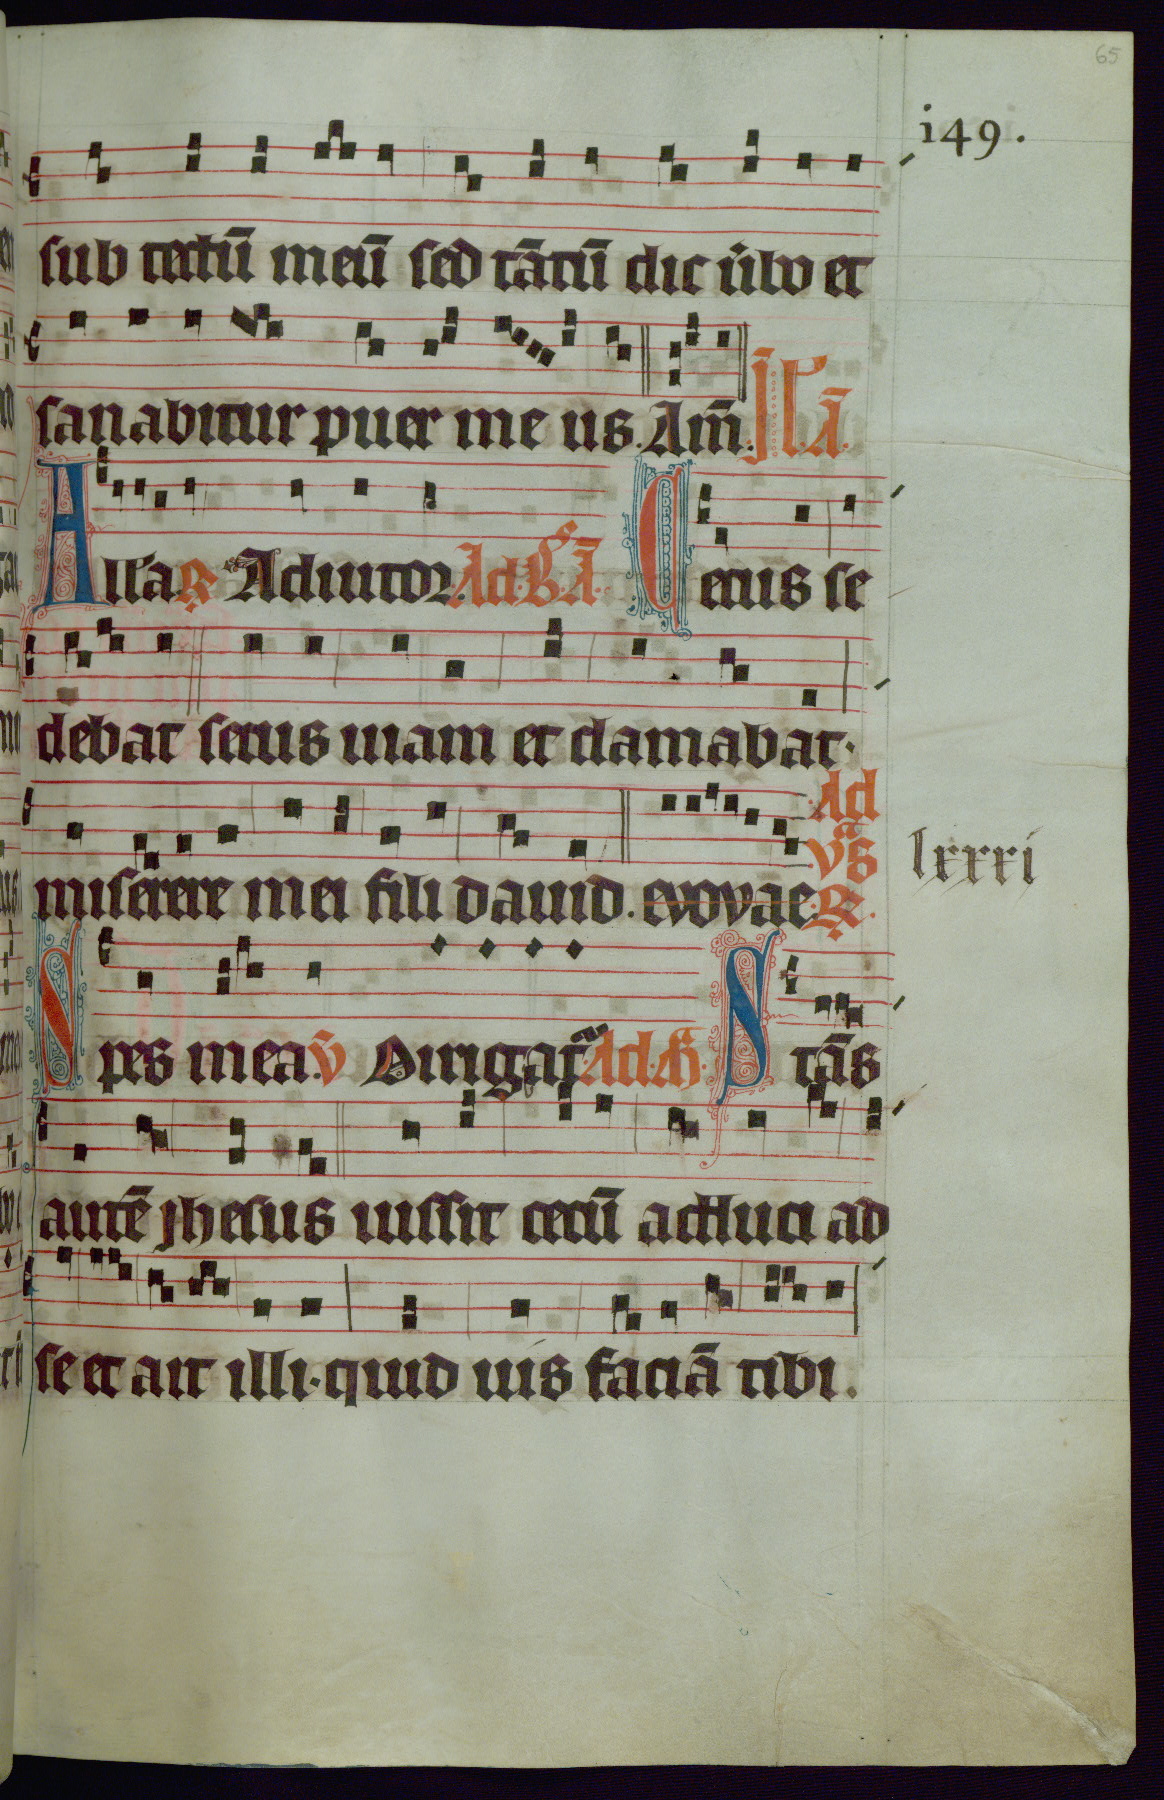 65
149.
sub tectū meū sed tātū dic u̇bo et
sanabitur puer me us. Am̄. Il. Ā.
Alla ℟ Adiutor. Ad. B. Ā. Cecus se
debat secus uiam et clamabat.
Ad
miserere mei fili dauid. evovae. ℟.
Vs̄
lxxxi
Spes mea. v̄ Dirigat̄. Ad. M̄. Stās
autē jhesus iussit cecū adduci ad
se et ait illi. quid uis faciā tibi.